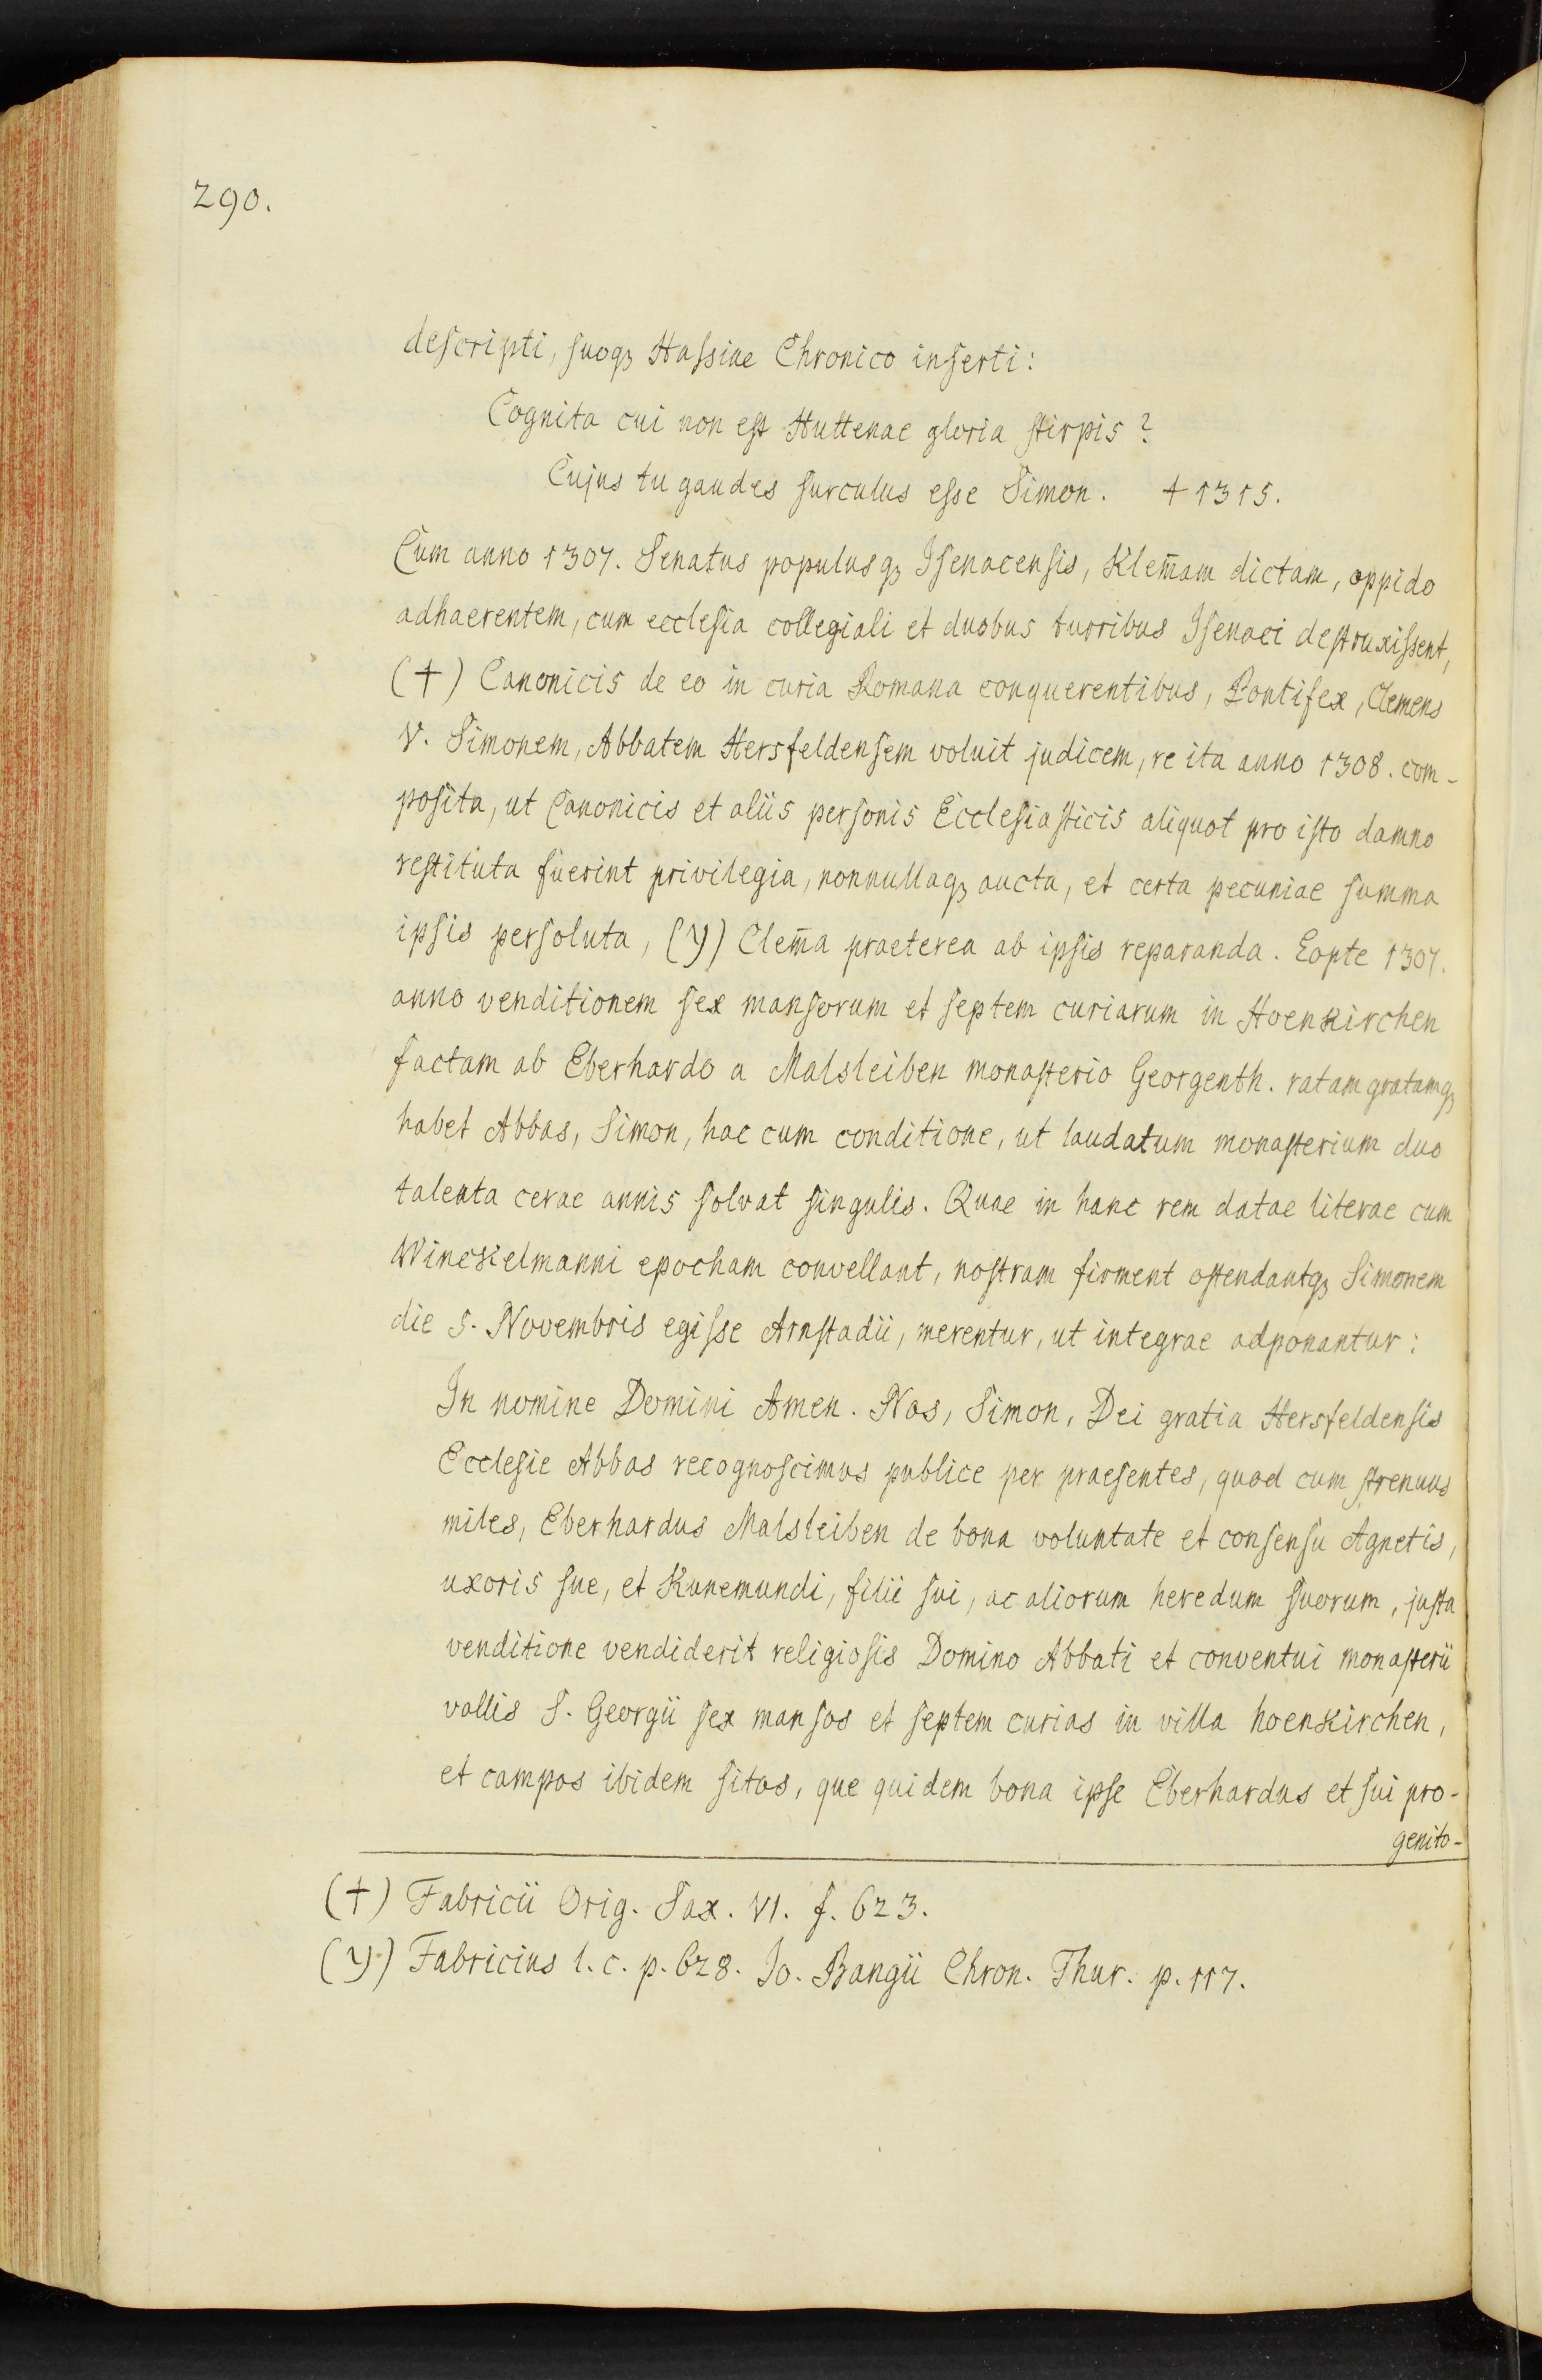 290.
descripti, suoqꝫ Hassiae Chronico inserti:
Cognita cui non est Huttenae gloria stirpis?
Cujus tu gaudes surculus esse Simon. † 1315.
Cum anno 1307. Senatus populusqꝫ Isenacensis, Klem̄am dictam, oppido
adhaerentem, cum ecclesia collegiali et duobus turribus Isenaci destruxissent,
(†) Canonicis de eo in curia Romana conquerentibus, Pontifex, Clemens
V. Simonem, Abbatem Hersfeldensem voluit judicem, re ita anno 1308. com-
posita, ut Canonicis et aliis personis Ecclesiasticis aliquot pro isto damno
restituta fuerint privilegia, nonnullaqꝫ aucta, et certa pecuniae summa
ipsis persoluta, (y) Clem̄a praeterea ab ipsis reparanda. Eopte 1307.
anno venditionem sex mansorum et septem curiarum in Hoenkirchen
factam ab Eberhardo a Malsleiben monasterio Georgenth. ratam gratamqꝫ
habet Abbas, Simon, hac cum conditione, ut laudatum monasterium duo
talenta cerae annis solvat singulis. Quae in hanc rem datae literae cum
Winckelmanni epocham convellant, nostram firment ostendantqꝫ Simonem
die 5. Novembris egisse Arnstadii, merentur, ut integrae adponantur:
In nomine Domini Amen. Nos, Simon, Dei gratia Hersfeldensis
Ecclesie Abbas recognoscimus publice per praesentes, quod cum strenuus
miles, Eberhardus Malsleiben de bona voluntate et consensu Agnetis,
uxoris sue, et Kunemundi, filii sui, ac aliorum heredum suorum, justa
venditione vendiderit religiosis Domino Abbati et conventui monasterii
vallis S. Georgii sex mansos et septem curias in villa hoenkirchen,
et campos ibidem sitos, que quidem bona ipse Eberhardus et sui pro-
genito-
(†) Fabricii Orig. Sax. VI. f. 623.
(y) Fabricius l. c. p. 628. Jo. Bangii Chron. Thur. p. 117.